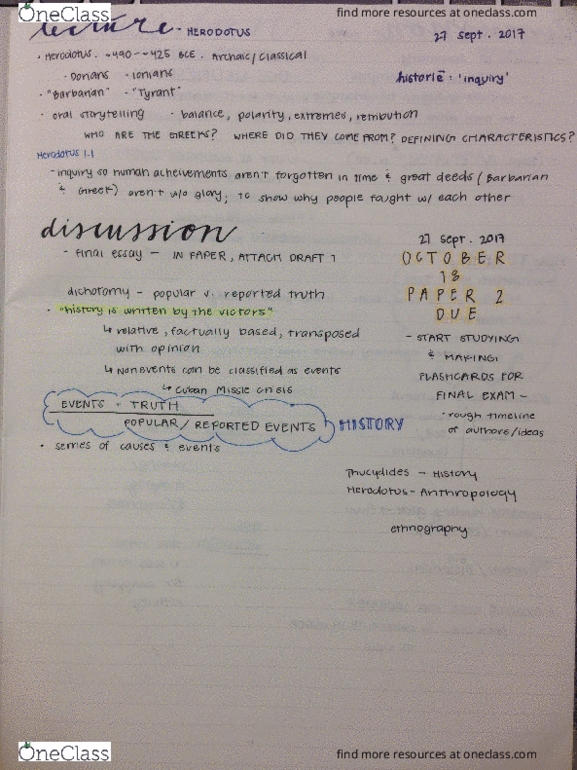 find more resources at oneclass.com
lecture - HERODOTUS
27 sept. 2017
• Herodotus. ~490-~425 BCE. Archaic/Classical
• Dorians • Ionians
historiē : 'inquiry'
• "Barbarian" • "Tyrant"
• oral storytelling • balance, polarity, extremes, retribution
WHO ARE THE GREEKS? WHERE DID THEY COME FROM? DEFINING CHARACTERISTICS?
Herodotus 1.1
- inquiry so human acheivements aren't forgotten in time & great deeds (Barbarian
& Greek) aren't w/o glory; to show why people fought w/ each other
discussion
27 sept. 2017
- final essay — IN PAPER, ATTACH DRAFT 1
OCTOBER
18
PAPER 2
DUE
dichotomy - popular v. reported truth
• "history is written by the victors"
↳ relative, factually based, transposed
with opinion
↳ Nonevents can be classified as events
↳ Cuban Missle Crisis
- START STUDYING
& MAKING
FLASHCARDS FOR
FINAL EXAM -
• rough timeline
of authors/ideas
EVENTS - TRUTH
POPULAR/REPORTED EVENTS
HISTORY
• series of causes & events
Thucydides - History
Herodotus - Anthropology
ethnography
OneClass
find more resources at oneclass.com